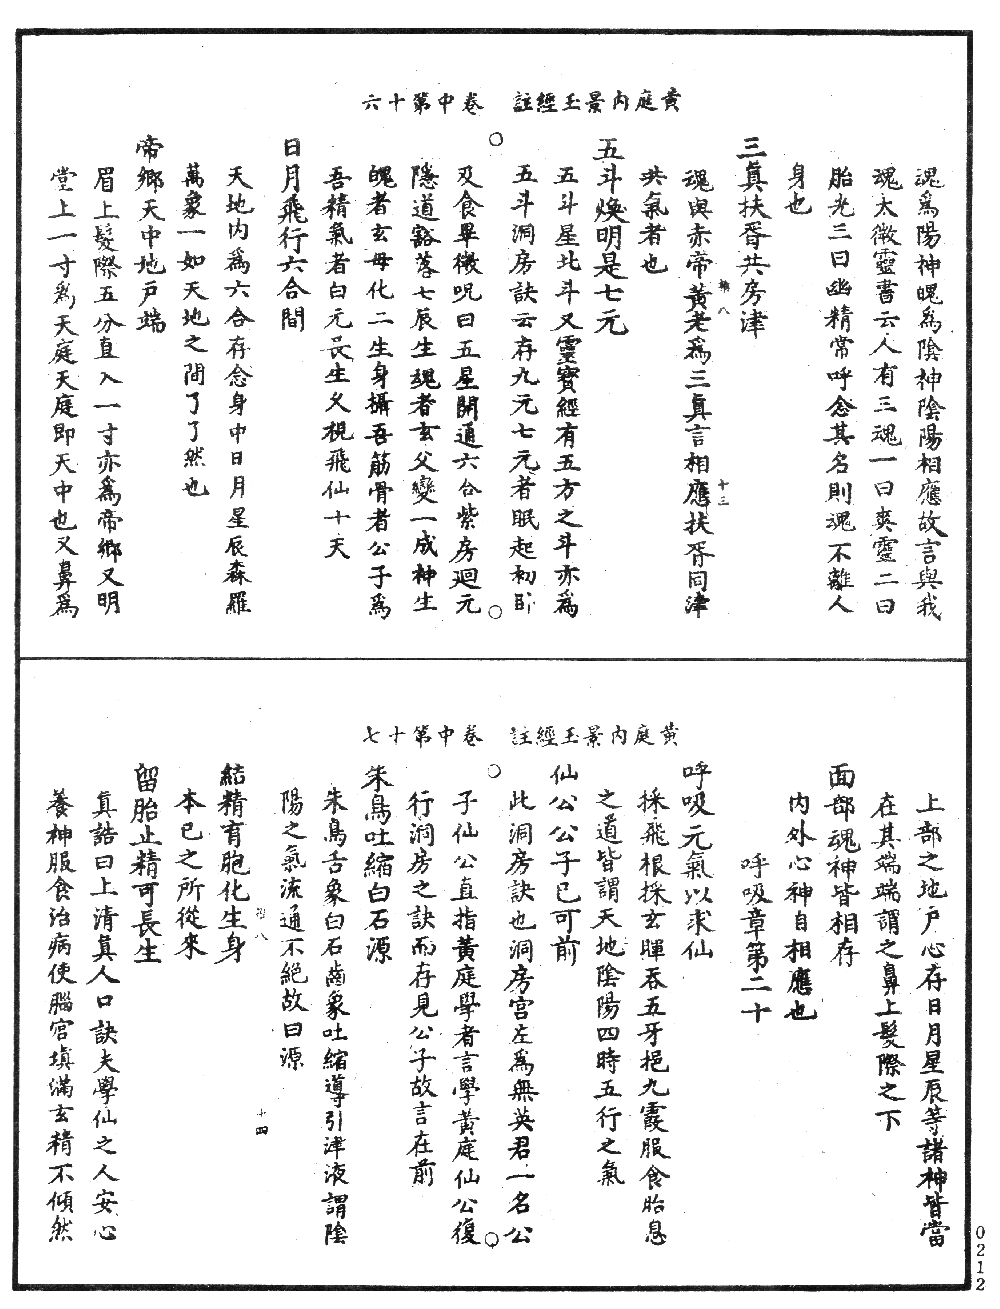 黄庭内景玉經註　卷中第十六
魂爲陽神魄爲陰神陰陽相應故言與我
魂太微靈書云人有三魂一曰爽靈二曰
胎光三曰幽精常呼念其名則魂不離人
身也
三真扶胥共房津
十三
魂與赤帝黄老爲三真言相應扶胥同津
共氣者也
五斗煥明是七元
五斗星北斗又靈寶經有五方之斗亦爲
五斗洞房訣云存九元七元者眠起初卧
及食畢微呪曰五星開通六合紫房迴元
隱道豁落七辰生魂者玄父變一成神生
魄者玄母化二生身攝吾筋骨者公子爲
吾精氣者白元長生久視飛仙十天
日月飛行六合間
天地内爲六合存念身中日月星辰森羅
萬象一如天地之間了了然也
帝鄉天中地戸端
眉上髮際五分直入一寸亦爲帝鄉又明
堂上一寸爲天庭天庭即天中也又鼻爲
黄庭内景玉經註　卷中第十七
上部之地戸心存日月星辰等諸神皆當
在其端端謂之鼻上髮際之下
面部魂神皆相存
内外心神自相應也
呼吸章第二十
呼吸元氣以求仙
採飛根採玄暉吞五牙挹九霞服食胎息
之道皆謂天地陰陽四時五行之氣
仙公公子已可前
此洞房訣也洞房宫左爲無英君一名公
子仙公直指黄庭學者言學黄庭仙公復
行洞房之訣而存見公子故言在前
朱鳥吐縮白石源
朱鳥舌象白石齒象吐縮導引津液謂陰
陽之氣流通不絕故曰源
十四
結精育胞化生身
本已之所從來
留胎止精可長生
真誥曰上清真人口訣夫學仙之人安心
養神服食治病使腦宫填滿玄精不傾然
0212